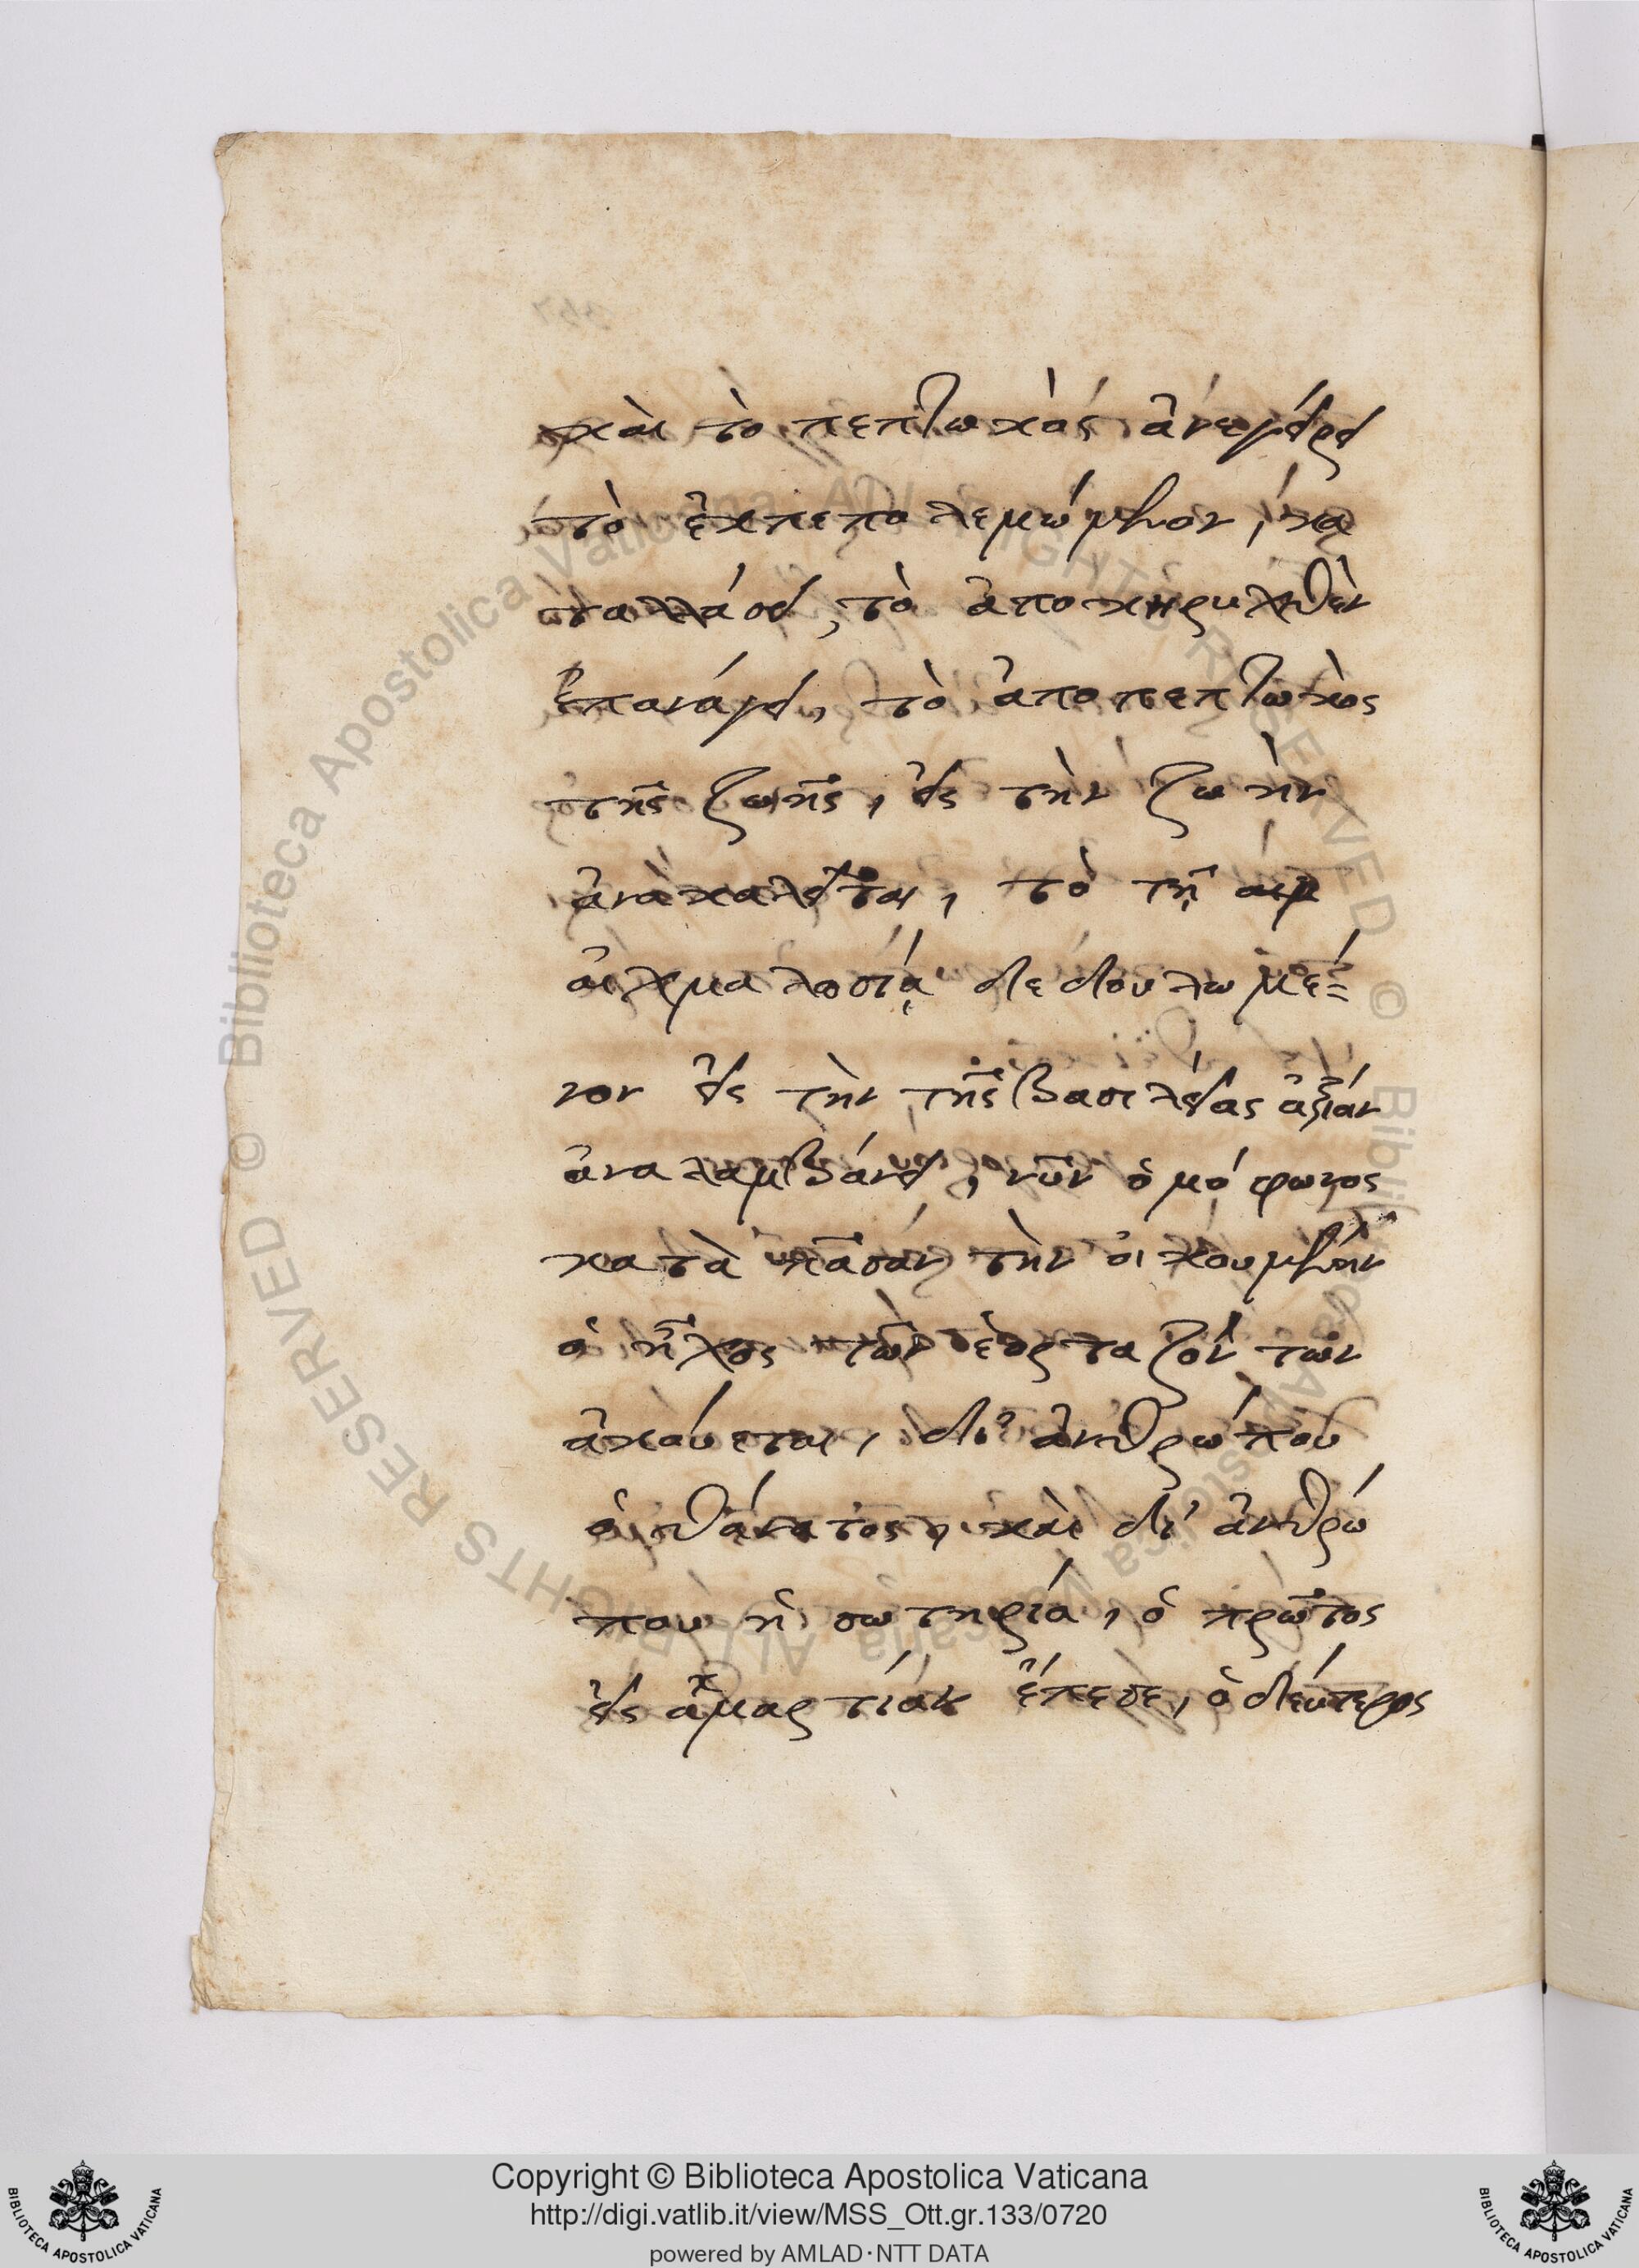 καὶ τὸ πεπτωκὸς ἀνεγείρει
τὸ ἐκπεπολεμώμενον, κα
ταλλάσει, τὸ ἀποκηρυχθὲν
ἐπανάγει, τὸ ἀποπεπτωκὸς
τῆς ζωῆς, εἰς τὴν ζωὴν
ἀνακαλεῖται, τὸ τῇ
αἰχμαλοσίᾳ δεδουλωμέ=
νον εἰς τὴν τῆς βασιλείας ἀξίαν
ἀναλαμβάνει, νῦν ὁμόφωνος
κατὰ πᾶσαν τὴν οἰκουμένην
ὁ ἦχος τῶν ἑορταζόντων
ἀκούεται, δι' ἀνθρώπου
ὁ θάνατος, καὶ δι' ἀνθρώ
που ἡ σωτηρία, ὁ πρῶτος
εἰς ἁμαρτίαν ἔπεσε, ὁ δεύτερος
Copyright © Biblioteca Apostolica Vaticana
http://digi.vatlib.it/view/MSS_Ott.gr.133/0720
powered by AMLAD·NTT DATA
BIBLIOTECA APOSTOLICA VATICANA
BIBLIOTECA APOSTOLICA VATICANA
Biblioteca Apostolica Vaticana ALL RIGHTS RESERVED ©
Biblioteca Apostolica Vaticana ALL RIGHTS RESERVED ©